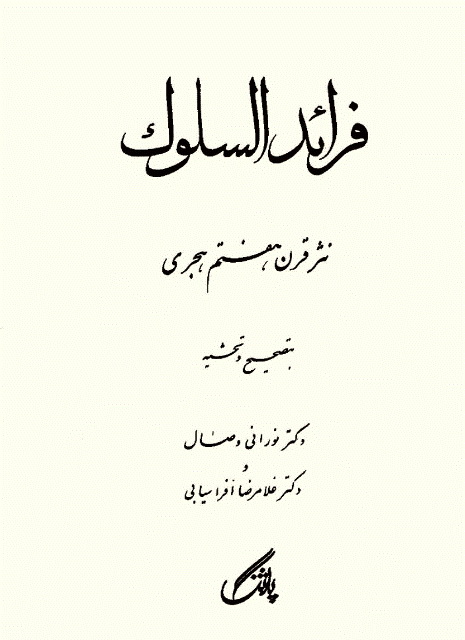 فرائد السلوک
نثر قرن هفتم هجری
بتصحیح و تحشیه
دکتر نورانی وصال
و
دکتر غلامرضا افراسیابی
پاژنگ